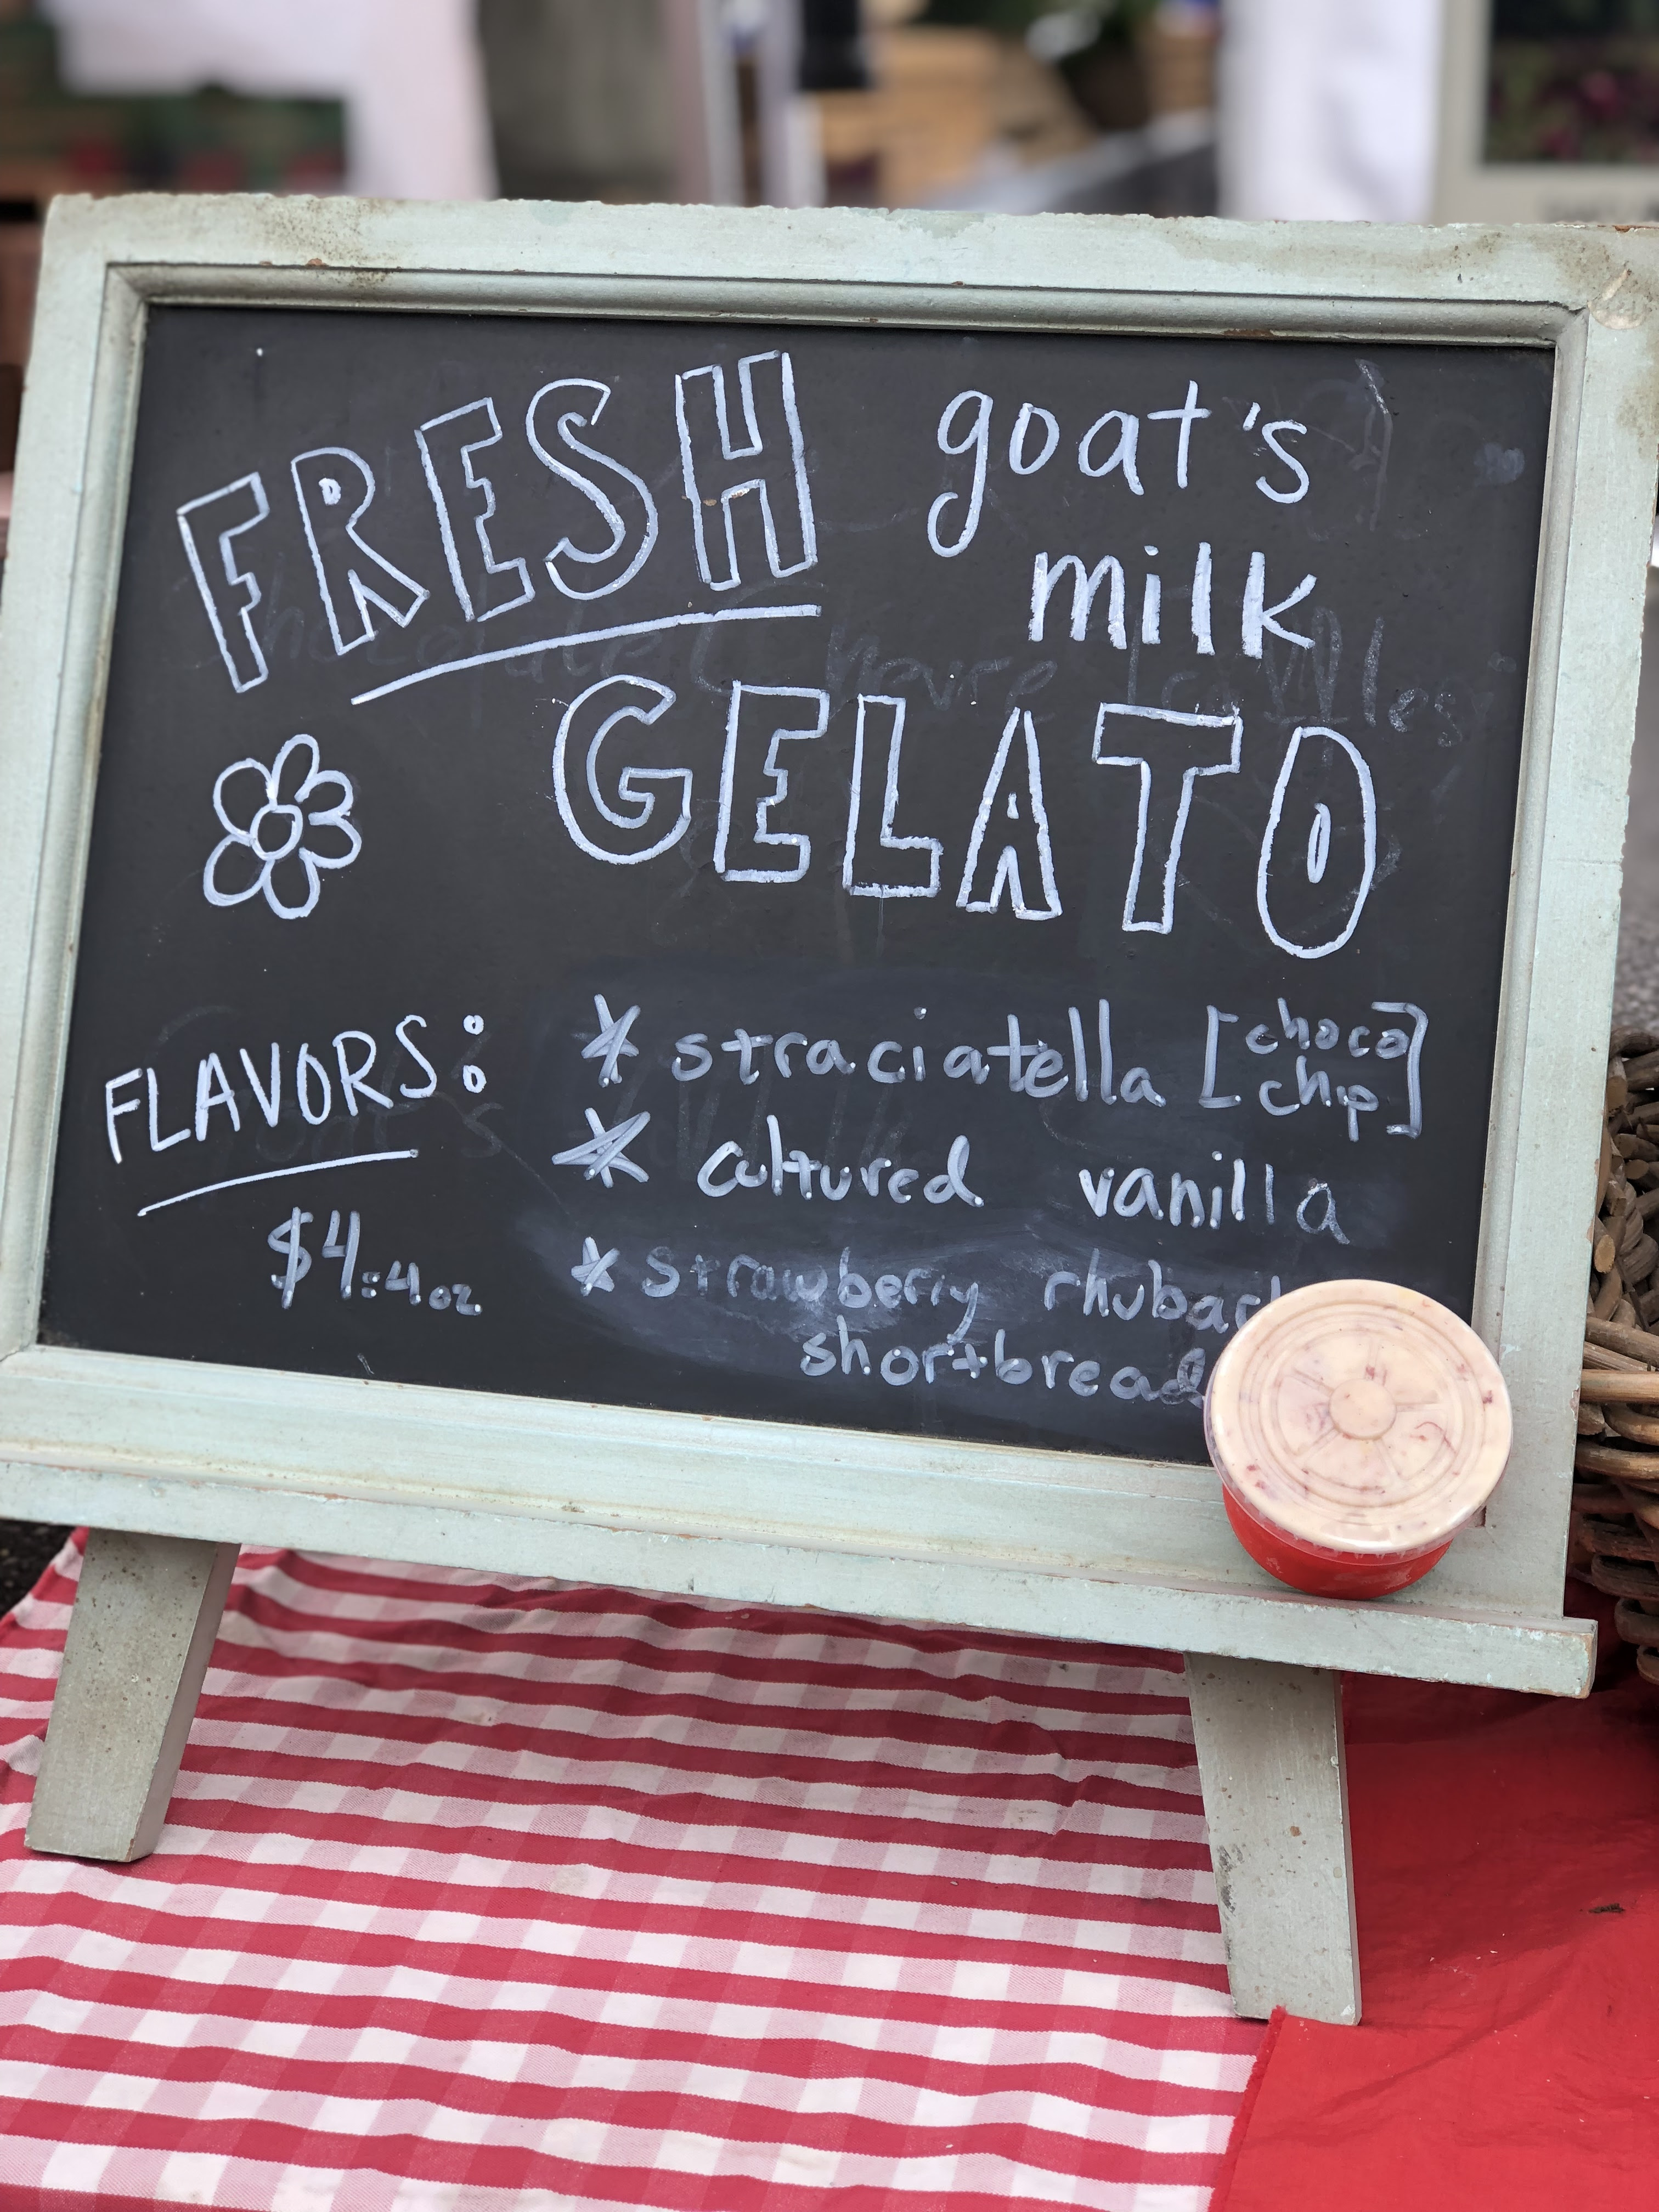 FRESH goat's
milk
GELATO
FLAVORS:
$4:4oz
* straciatella [choco chip]
* cultured vanilla
* strawberry rhubarb
shortbread